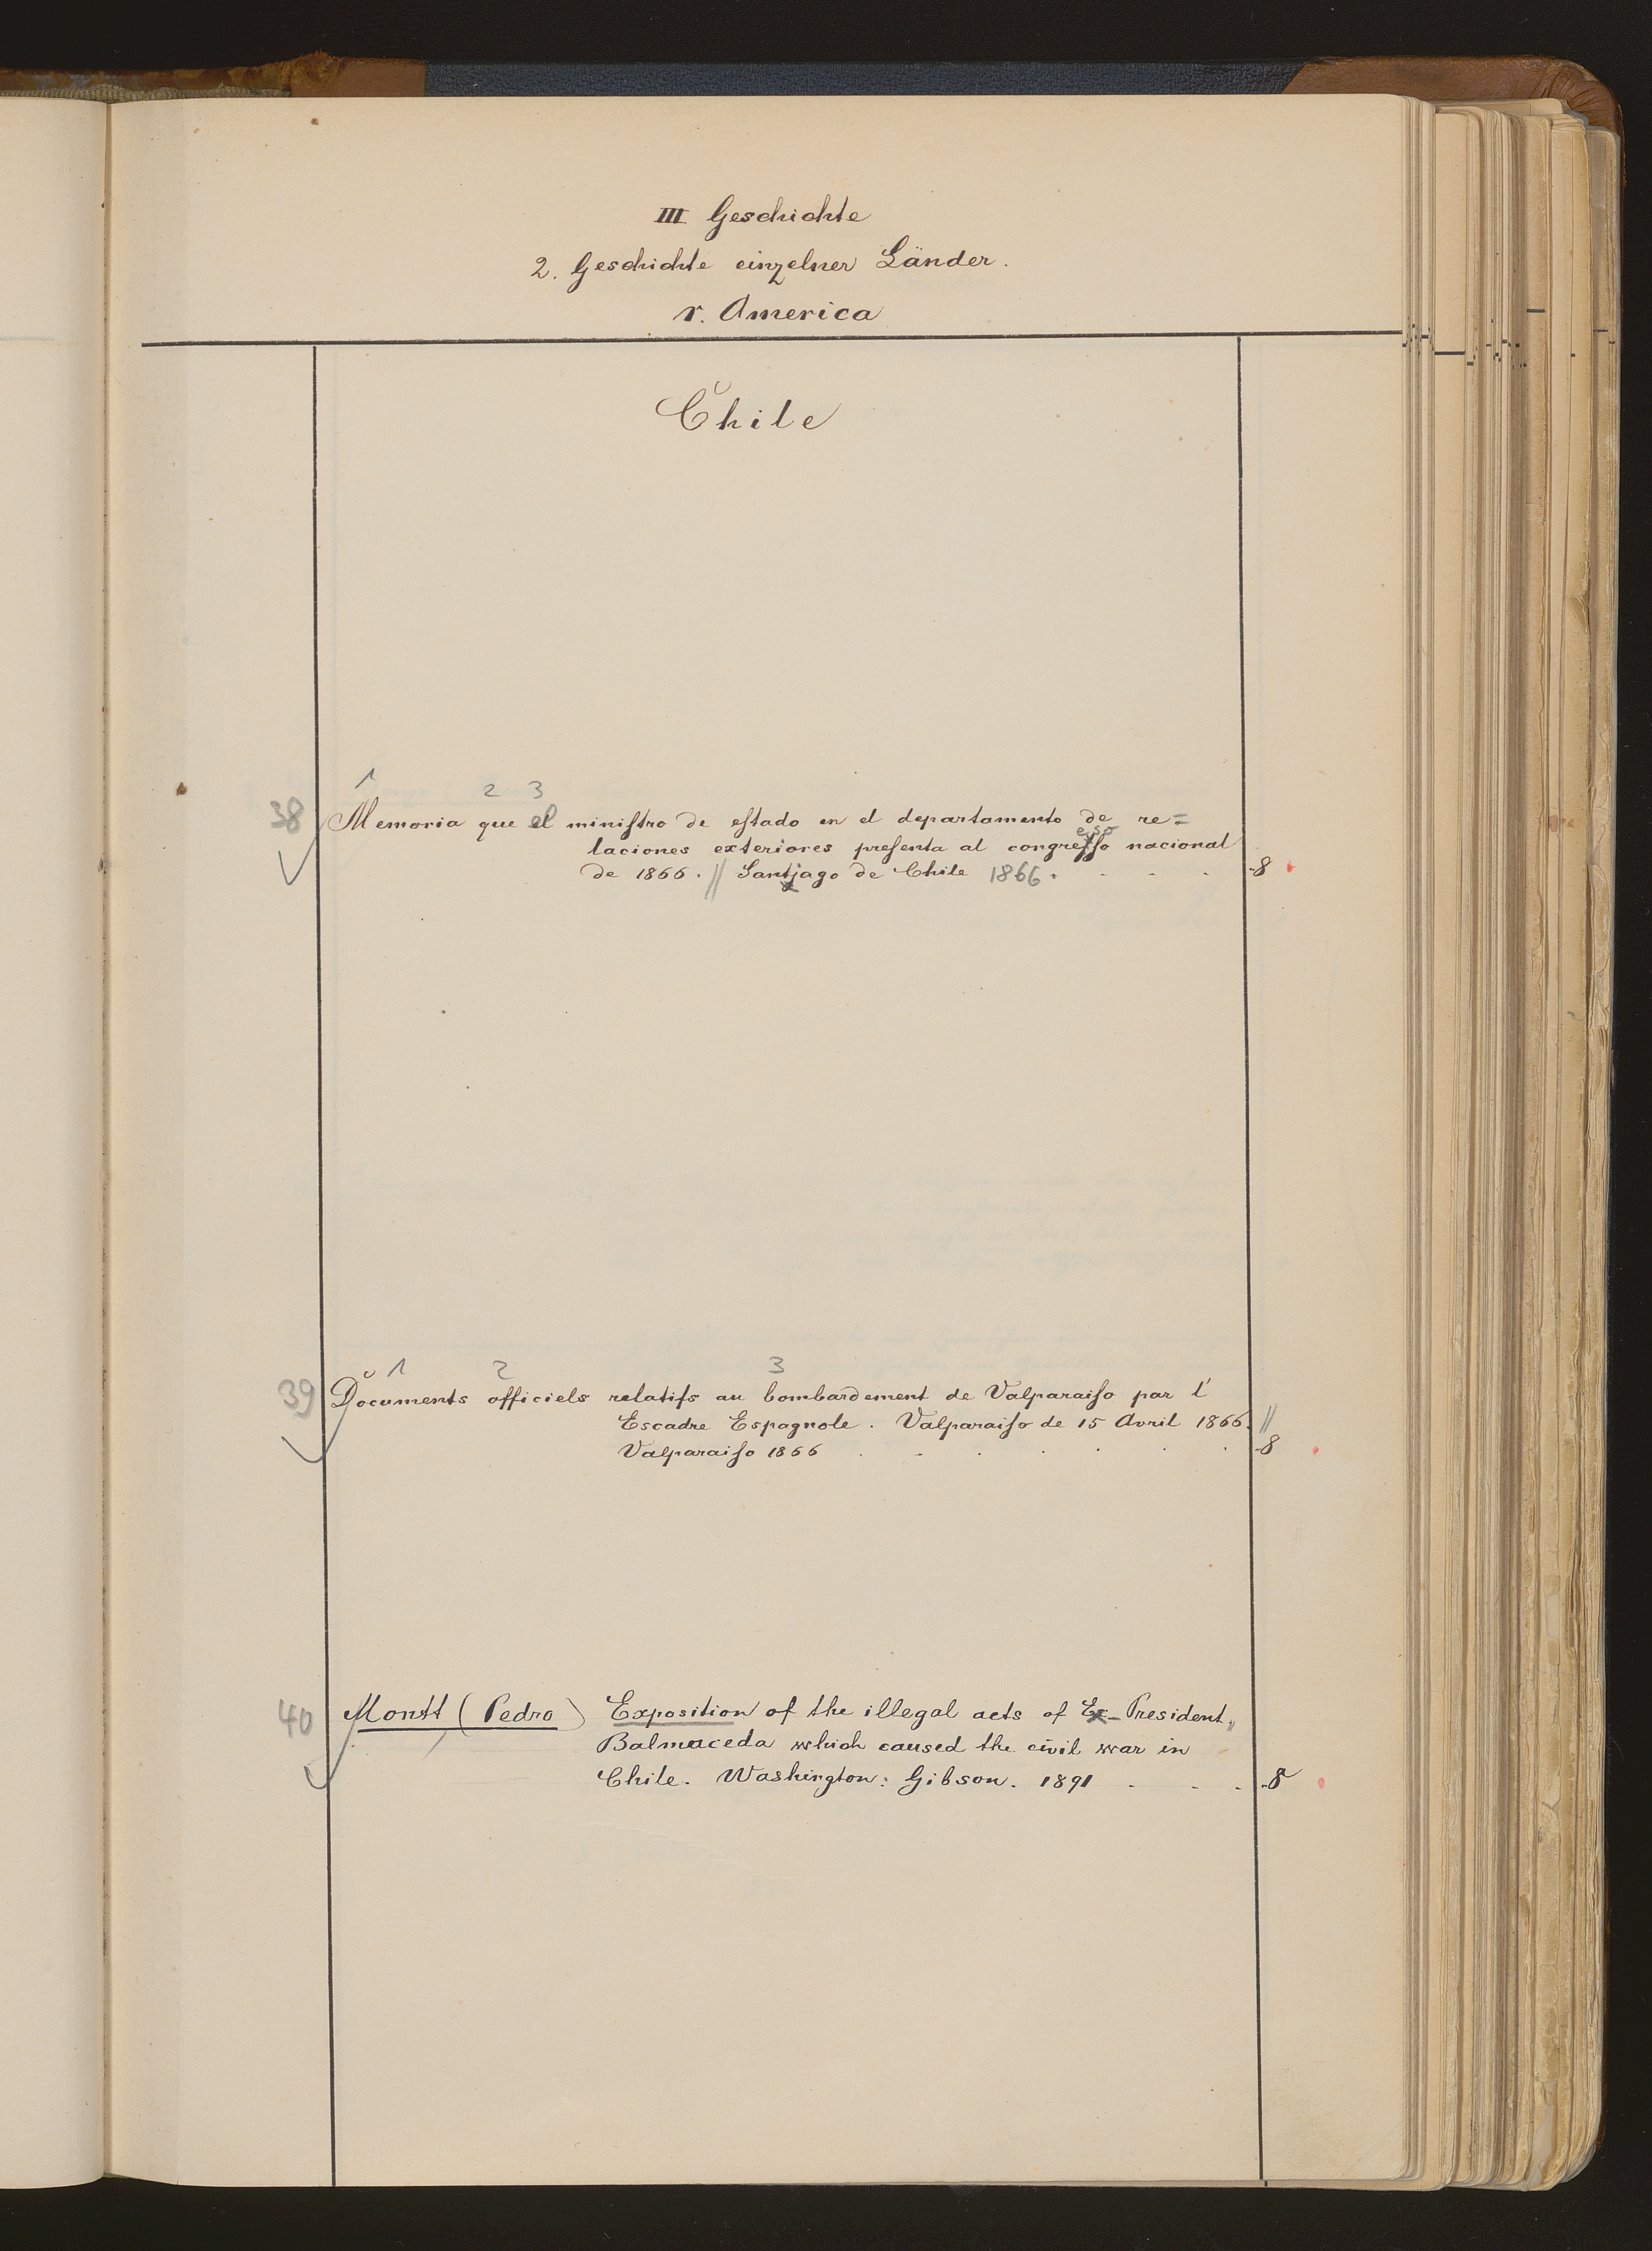 III Geschichte
2. Geschichte einzelner Länder.
r. America
Chile
1 2 3
38 Memoria que el ministro de estado en el departamento de re=
eso
laciones exteriores presenta al congresso nacional
de 1866. // Santjago de Chile 1866. . . . 8
1 2 3
39 Documents officiels relatifs au bombardement de Valparaiso par l'
Escadre Espagnole. Valparaiso de 15 Avril 1866. //
Valparaiso 1866 . . . . . . 8
40 Montt (Pedro) Exposition of the illegal acts of Ex-President
Balmaceda which caused the civil war in
Chile. Washington: Gibson. 1891 . . . 8